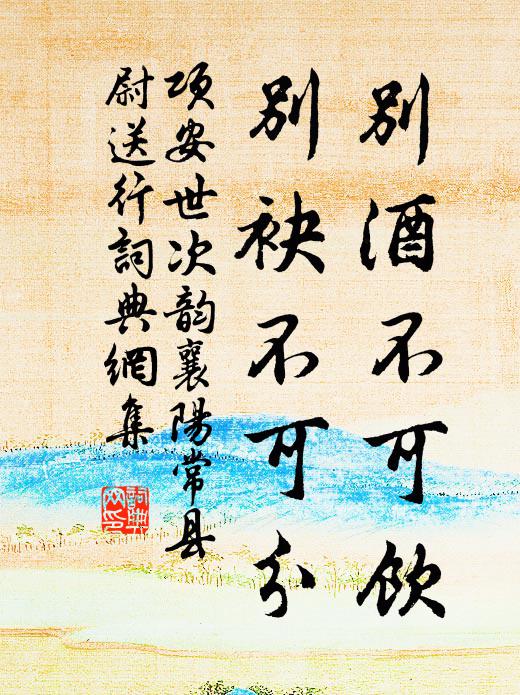 别酒不可飲
别袂不可分
项安世次韵襄陽常县
尉送行詞典網集
詞典
网印